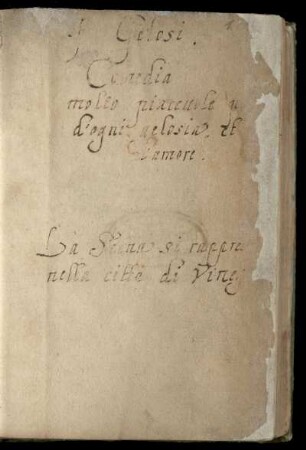 Gelosi.
Comedia
molto piaceuole
d'ogni gelosia, et
d'amore.
La Scena si rappre
nella città di Vine